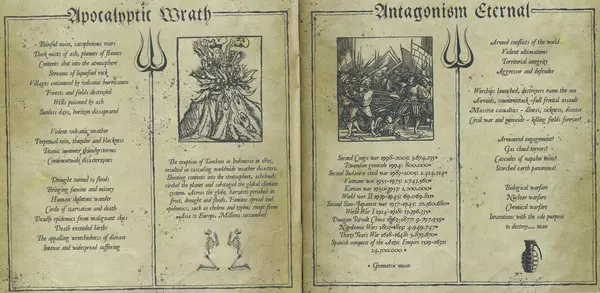 Apocalyptic Wrath
Painful noise, cacophonous roars
Dark mists of ash, plumes of flames
Contents shot into the atmosphere
Streams of liquefied rock
Villages consumed by volcanic hurricanes
Forests and fields destroyed
Wells poisoned by ash
Sunless days, horizon dissapeared
Violent volcanic weather
Perpetual rain, thunder and blackness
Titanic summer islandstorms
Drought turned to floods
Bringing famine and misery
Human skeletons wander
Circle of starvation and death
Deadly epidemics from malignant skies
Death exceeded births
The appalling wretchedness of disease
Intense and widespread suffering
The eruption of Tambora in Indonesia in 1815,
resulted in cascading worldwide weather disasters.
Shooting contents into the stratosphere, ashclouds
circled the planet and sabotaged the global climate
system. Across the globe, harvests perished in
frost, drought and floods. Famine spread and
epidemics, such as cholera and typhus raged from
Asia to Europe. Millions succumbed.
Antagonism Eternal
Second Congo war 1998-2003: 3,674,235*
Rwandan genocide 1994: 800.000*
Second Sudanese civil war 1983-2005: 1,414,214*
Vietnam war 1955-1975:
Korean war 1950-1953: 1,200,000*
World war II 1939-1945:
Second Sino-Japanese war 1937-1945:
World War I 1914-1918:
Dungan Revolt China 1862-1877:
Napoleonic Wars 1803-1815:
Thirty Years War 1618-1648:
Spanish conquest of the Aztec Empire 1519-1632:
24,300,000*
* Geometric mean
Armed conflicts of the world
Violent ultimatums
Territorial integrity
Aggressor and defender
Warships launched, destroyers roam the sea
Airraids, counterattack - full frontal assault
Massive casualties - illness, sickness, disease
Civil war and genocide - killing fields forever!
Armoured engagement!
Gas cloud terrors!
Cascades of napalm mist!
Scorched earth panorama!
Biological warfare
Nuclear warfare
Chemical warfare
Inventions with the sole purpose
to destroy.... man